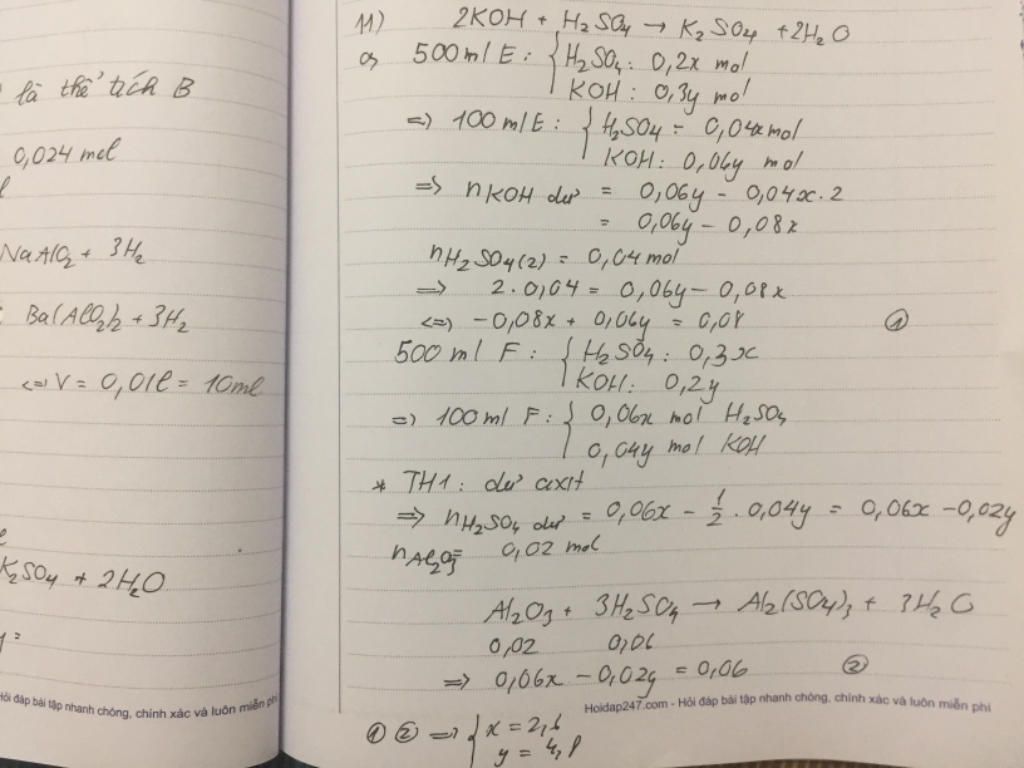 là thể tích B
0,024 mol
NaAlO2 + 3H2
Ba(AlO2)2 + 3H2
<=> V = 0,01l = 10ml
K2SO4 + 2H2O
Hỏi đáp bài tập nhanh chóng, chính xác và luôn miễn phí
11) 2KOH + H2SO4 → K2SO4 + 2H2O
a, 500ml E: { H2SO4: 0,2x mol
KOH: 0,3y mol
=> 100ml E: { H2SO4 = 0,04x mol
KOH: 0,06y mol
=> nKOH dư = 0,06y - 0,04x.2
= 0,06y - 0,08x
nH2SO4(2) = 0,04 mol
=> 2.0,04 = 0,06y - 0,08x
<=> -0,08x + 0,06y = 0,08 ①
500 ml F: { H2SO4: 0,3x
KOH: 0,2y
=> 100ml F: { 0,06x mol H2SO4
0,04y mol KOH
* TH1: dư axit
=> nH2SO4 dư = 0,06x - 1/2 . 0,04y = 0,06x - 0,02y
nAl2O3 = 0,02 mol
Al2O3 + 3H2SO4 → Al2(SO4)3 + 3H2O
0,02 0,06
=> 0,06x - 0,02y = 0,06 ②
Hoidap247.com - Hỏi đáp bài tập nhanh chóng, chính xác và luôn miễn phí
① ② => { x = 2,6
y = 4,8